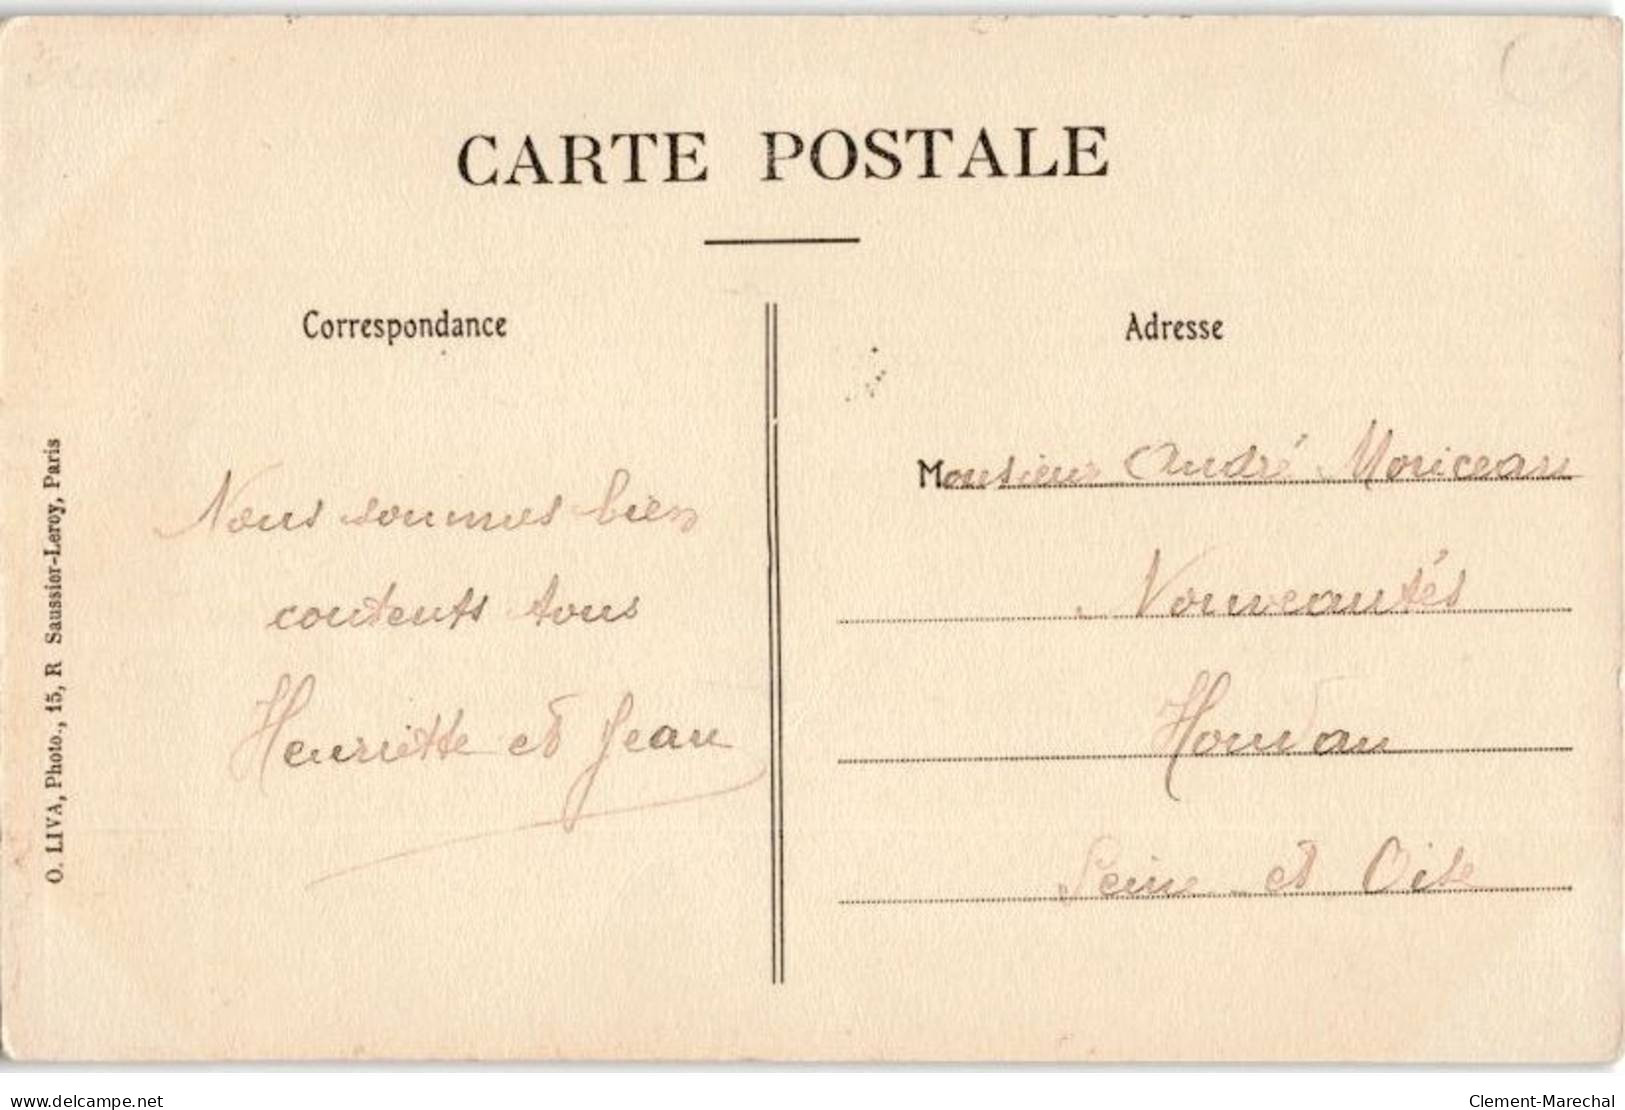 CARTE POSTALE
Correspondance
Adresse
O. LIVA, Photo., 15, R Saussier-Leroy, Paris
Nous sommes bien
contents tous
Henriette et Jean
Monsieur André Moriceau
Nouveautés
Houdan
Seine et Oise
www.delcampe.net
Clement-Marechal